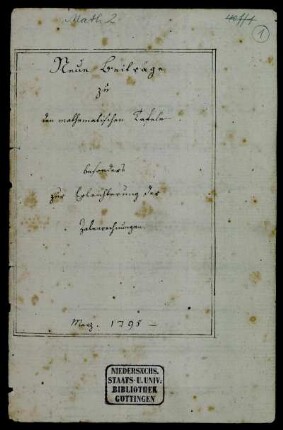 Math. 2.
1
Neue Beiträge
zu
den mathematischen Tafeln
besonders
zur Erleichterung der
Zahlenrechnungen
März. 1798 –
NIEDERSÄCHS.
STAATS- U. UNIV.-
BIBLIOTHEK
GÖTTINGEN